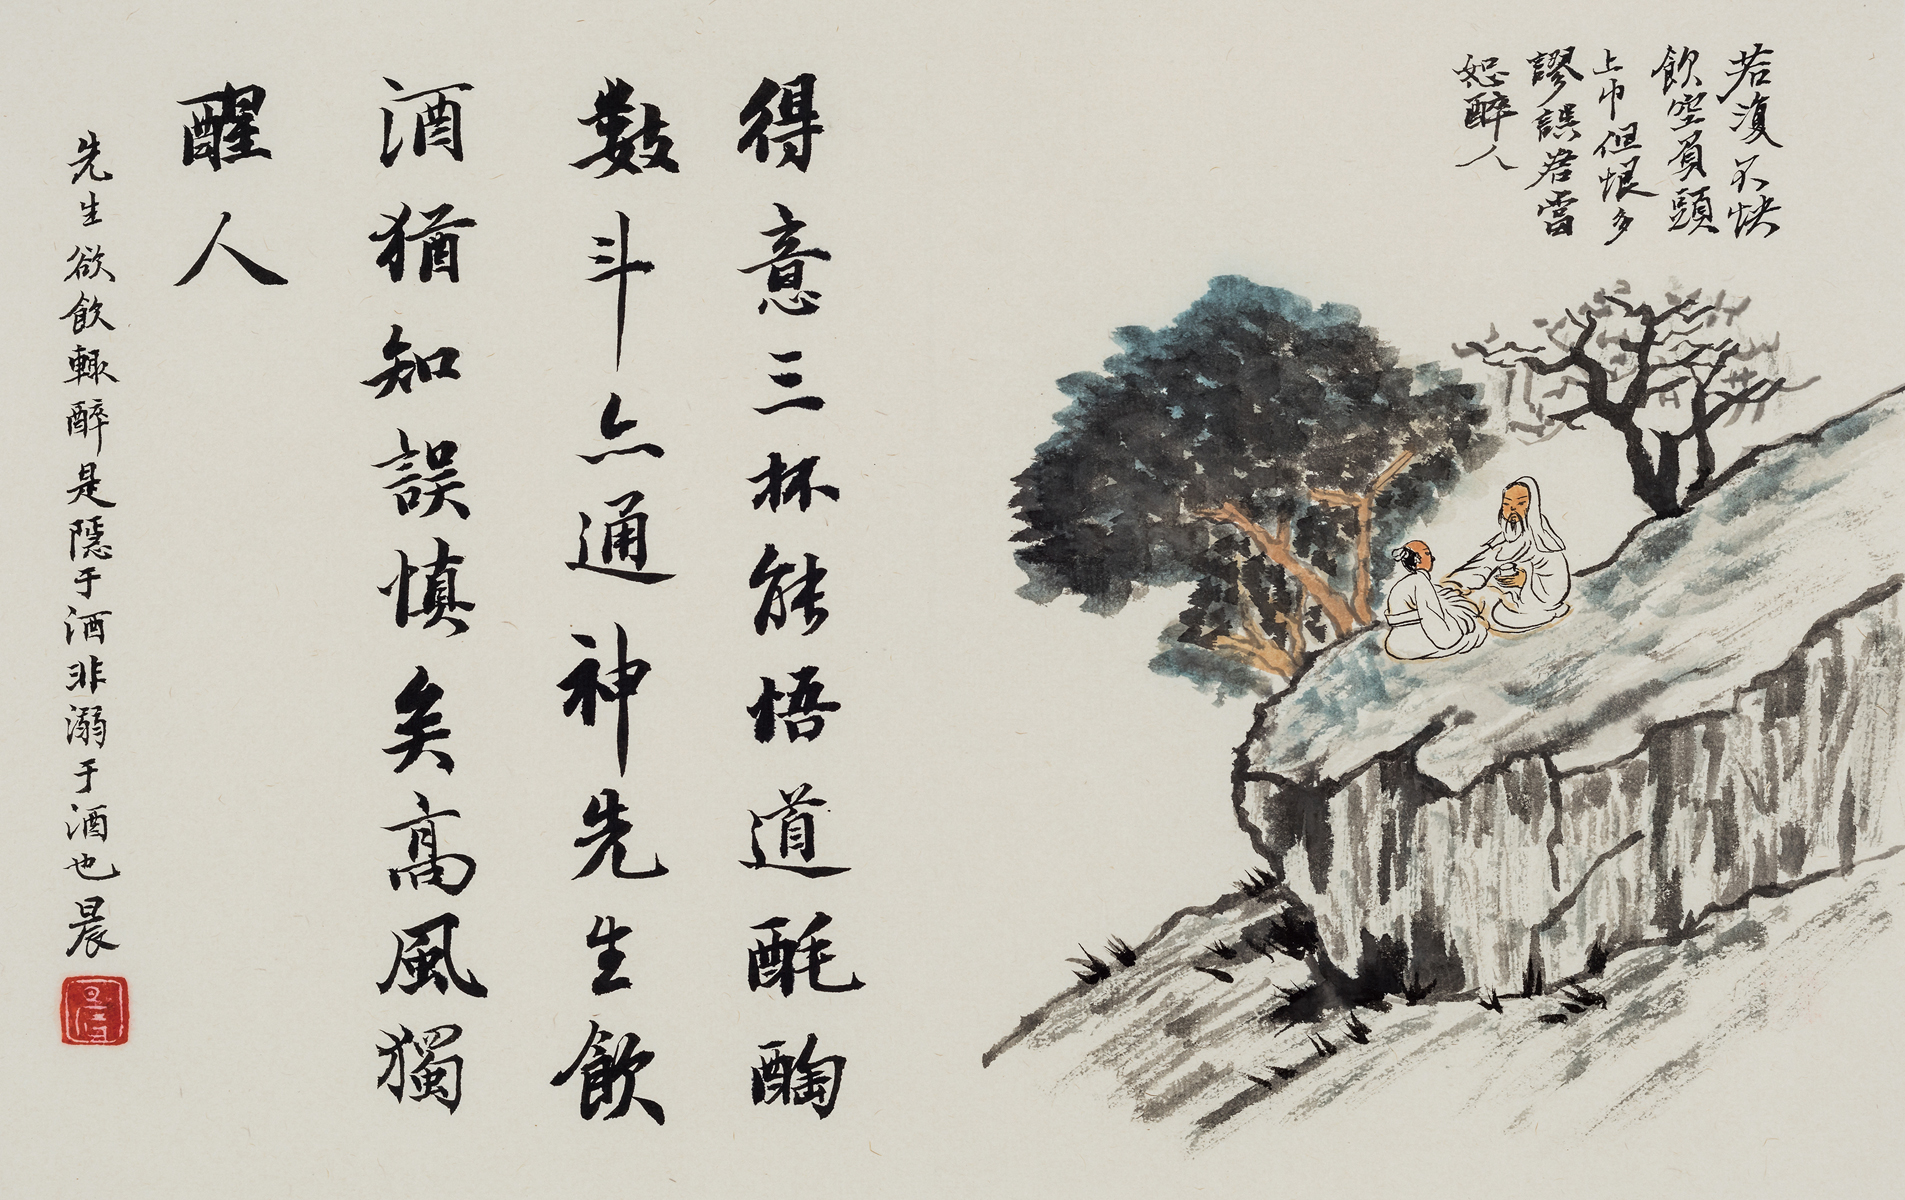 若復不快
飲空負頭
上巾但恨多
謬誤君當
恕醉人
得意三杯能悟道酕醄
數斗亦通神先生飲
酒猶知誤慎矣高風獨
醒人
先生欲飲輒醉是隱于酒非溺于酒也晨